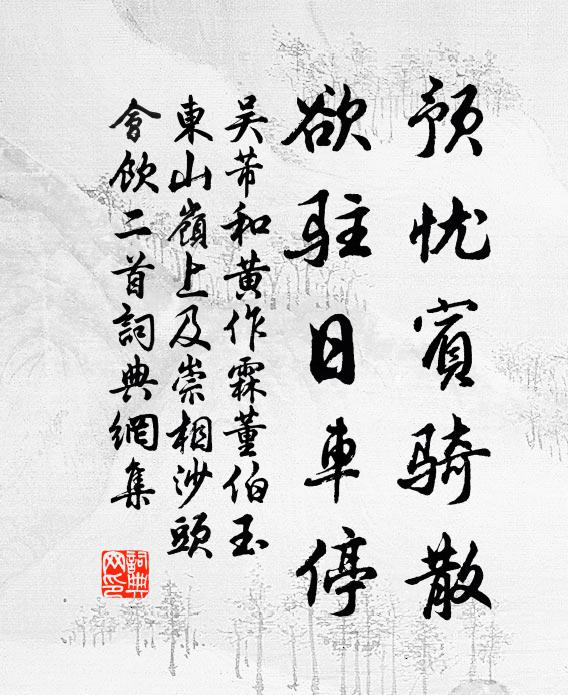 预忧賓骑散
欲驻日車停
吴芾和黄作霖董伯玉
東山嶺上及崇相沙頭
會飲二首詞典網集
詞典网印